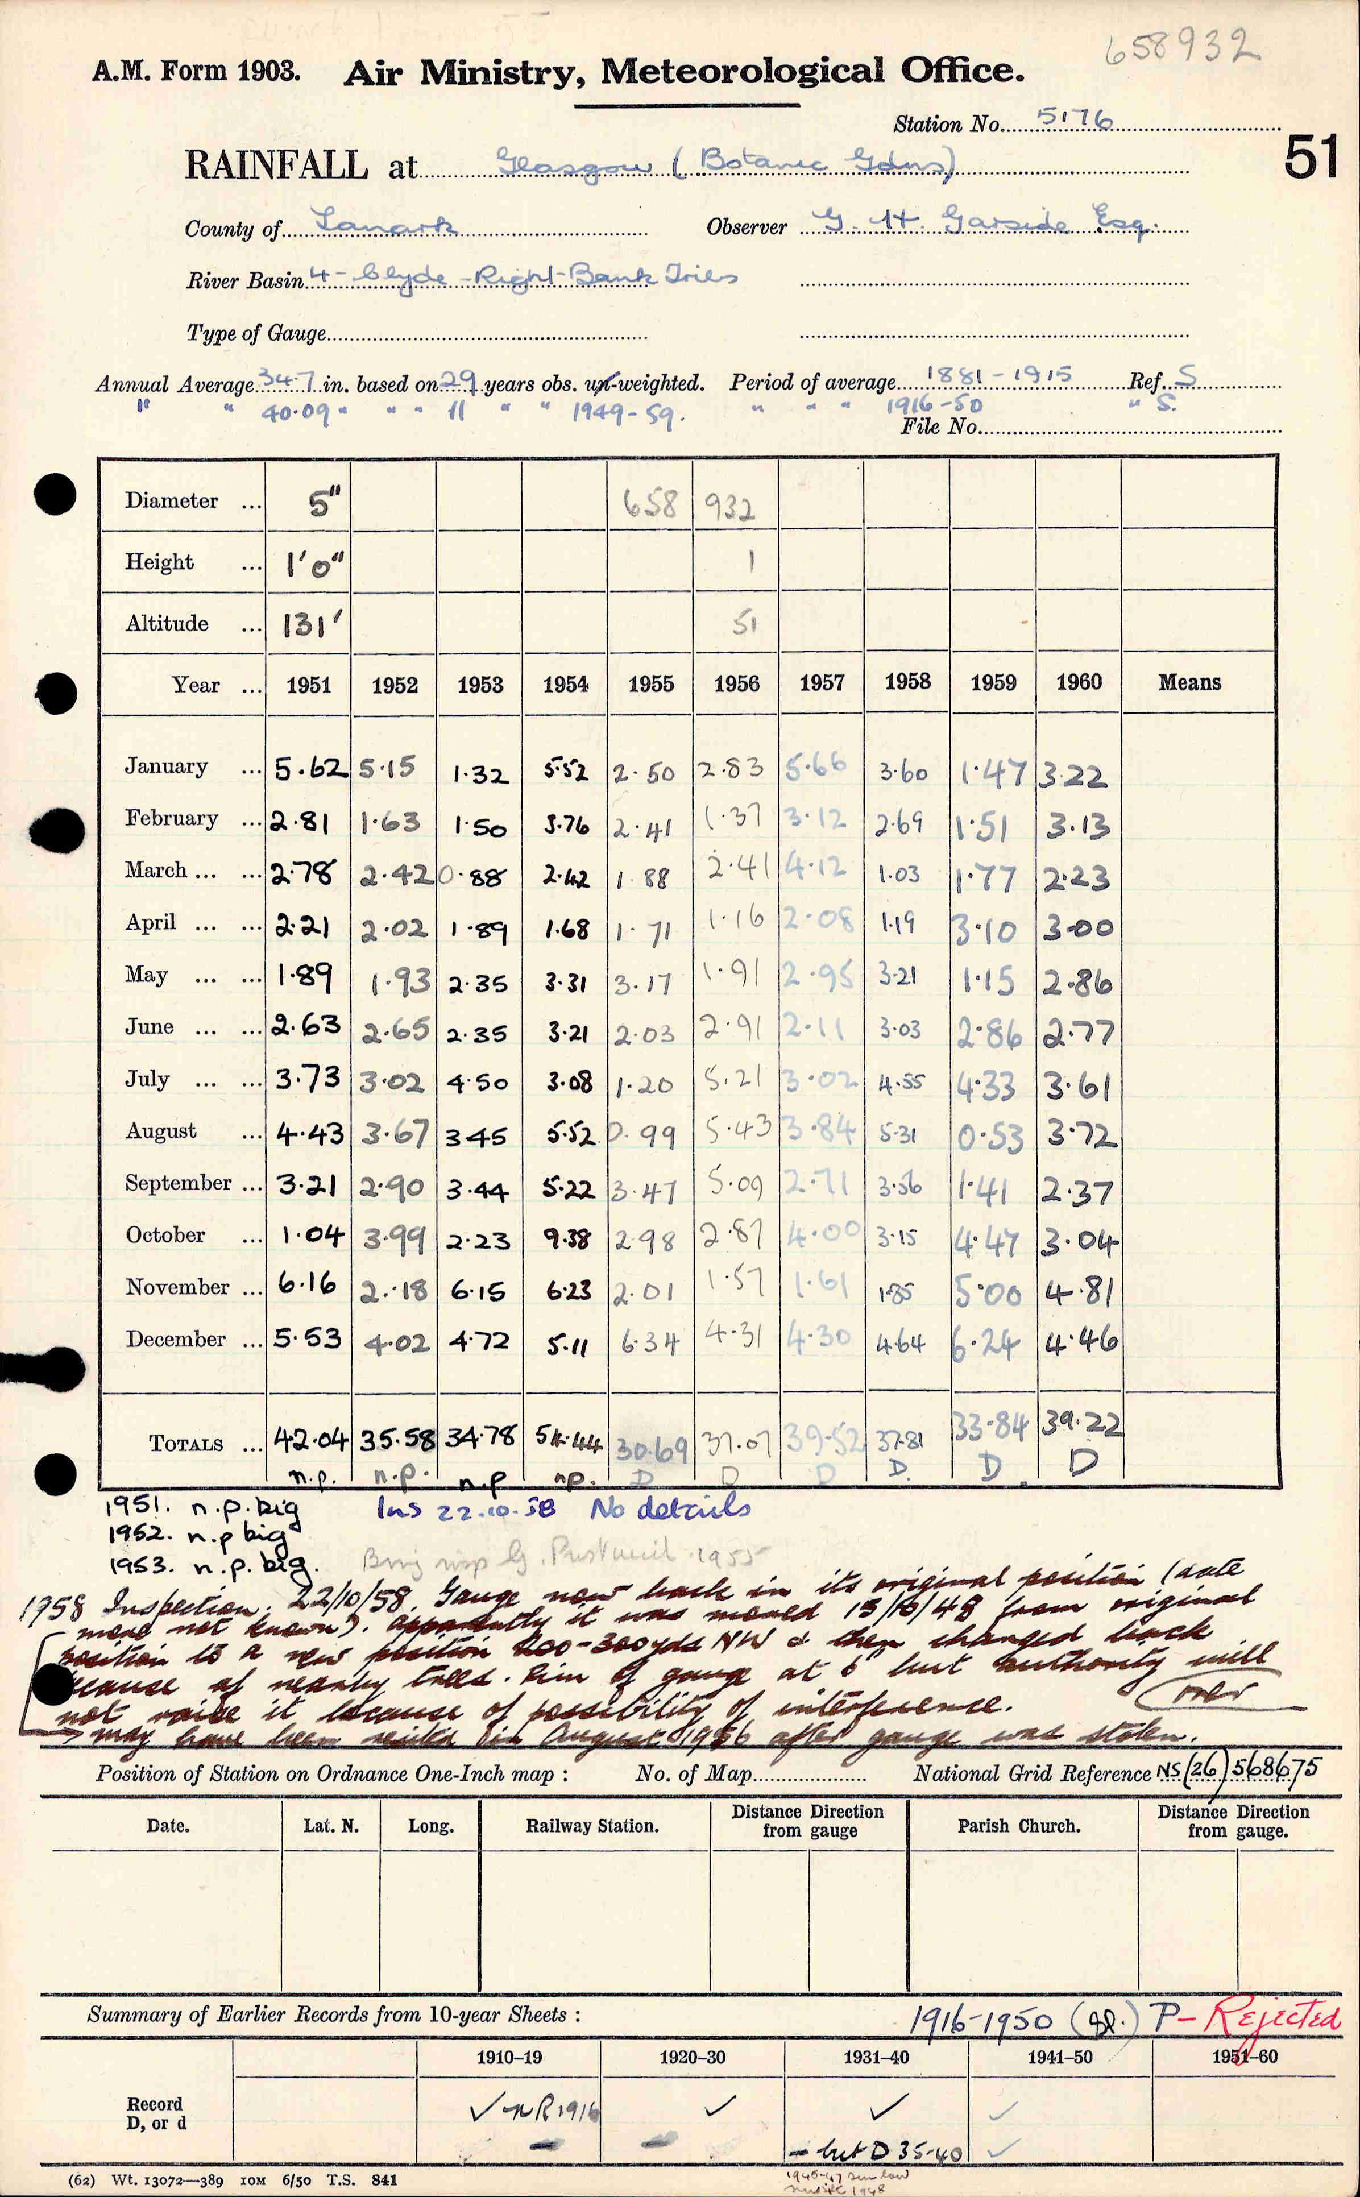 658932
A.M. Form 1903. Air Ministry, Meteorological Office.
Station No. 5176
51
RAINFALL at Glasgow (Botanic Gdns)
County of Lanark Observer G. H. Garside Esq.
River Basin 4 - Clyde - Right - Bank Tribs
Type of Gauge
Annual Average 34.7 in. based on 29 years obs. un-weighted. Period of average 1881-1915 Ref. S
" " 40.09 " " " 11 " " 1949-59. " " " 1916-50 " S.
File No.
Diameter ... 5" 658 932
Height ... 1'0" 1
Altitude ... 131' 51
Year ... 1951 1952 1953 1954 1955 1956 1957 1958 1959 1960 Means
January ... 5.62 5.15 1.32 5.52 2.50 2.83 5.66 3.60 1.47 3.22
February ... 2.81 1.63 1.50 3.76 2.41 1.37 3.12 2.69 1.51 3.13
March ... ... 2.78 2.42 0.88 2.42 1.88 2.41 4.12 1.03 1.77 2.23
April ... ... 2.21 2.02 1.89 1.68 1.71 1.16 2.08 1.19 3.10 3.00
May ... ... 1.89 1.93 2.35 3.31 3.17 1.91 2.95 3.21 1.15 2.86
June ... ... 2.63 2.65 2.35 3.21 2.03 2.91 2.11 3.03 2.86 2.77
July ... ... 3.73 3.02 4.50 3.08 1.20 5.21 3.02 4.55 4.33 3.61
August ... 4.43 3.67 3.45 5.52 0.99 5.43 3.84 5.31 0.53 3.72
September ... 3.21 2.90 3.44 5.22 3.47 5.09 2.71 3.56 1.41 2.37
October ... 1.04 3.99 2.23 9.38 2.98 2.87 4.00 3.15 4.47 3.04
November ... 6.16 2.18 6.15 6.23 2.01 1.57 1.61 1.85 5.00 4.81
December ... 5.53 4.02 4.72 5.11 6.34 4.31 4.30 4.64 6.24 4.46
TOTALS ... 42.04 35.58 34.78 54.44 30.69 37.07 39.52 37.81 33.84 39.22
n.p. n.p. n.p n.p. D D D D. D. D
1951. n.p. big Ins 22.10.58 No details
1952. n.p big
1953. n.p. big. 1955
1958 Inspection. 22/10/58. Gauge now back in its original position (date
move not known). Apparently it was moved 15/10/48 from original
position to a new position 200-300yds NW & then changed back
because of nearby trees. Rim of gauge at 6" but authority will
not raise it because of possibility of interference. (over
→ may have been resited in August 1956 after gauge was stolen.
Position of Station on Ordnance One-Inch map : No. of Map National Grid Reference NS (26) 568675
Date. Lat. N. Long. Railway Station. Distance Direction from gauge Parish Church. Distance Direction from gauge.
Summary of Earlier Records from 10-year Sheets : 1916-1950 (Gl.) P - Rejected
1910–19 1920–30 1931–40 1941–50 1951–60
Record D, or d ✓ n R 1916 ✓ ✓ ✓
- - - but D 35-40 ✓
(62) Wt. 13072—389 10M 6/50 T.S. 841